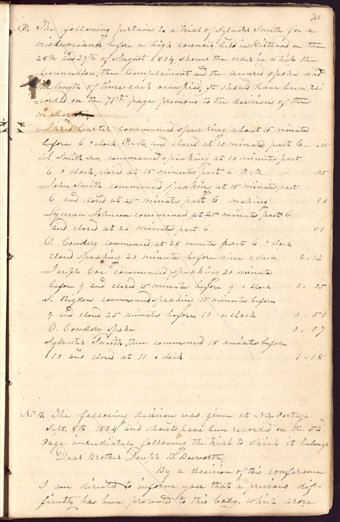 73
N.B. The following pertains to a trial of Sylvester Smith for a
misdemeanor before a high council held in Kirtland on the
28th and 29th of August 1834, shows the order in which the
Counsellors, then Complainant and the accuser spoke and
length of time each occupied, It should have been re-
corded on the 71st page previous to the decision of the
Jared Carter commenced speaking about 15 minutes
before 6 o'clock P.M. and closed at 10 minutes past 6 .15
Smith commenced speaking at 10 minutes past
6 o'clock, closed at 15 minutes past 6 P.M. .05
John Smith commenced speaking at 15 minutes past
6 and closed at 25 minutes past 6 making 10
Lyman Johnson commenced at 25 minutes past 6
and closed at 26 minutes past 6 01
O. Cowdery commenced at 28 minutes past 6 o'clock
closed speaking 20 minutes before nine o'clock 2.12
Joseph Coe commenced speaking 20 minutes
before 9 and closed 15 minutes before 9 o'clock 0.05
S. Rigdon commenced speaking 15 minutes before
9 and closed 25 minutes before 10 o'clock 0.50
O. Cowdery spoke 0.07
Sylvester Smith then commenced 18 minutes before
10 and closed at 11 o'clock 1.18
N.B. The following decision was given at New Portage
Sept. 8th 1834 and should have been recorded on the
page immediately following the trial to which it belongs
Dear Brother Joseph H. Bosworth,
By a decision of this conference
I am directed to inform you that a previous dif-
ficulty has been presented to this body, which arose